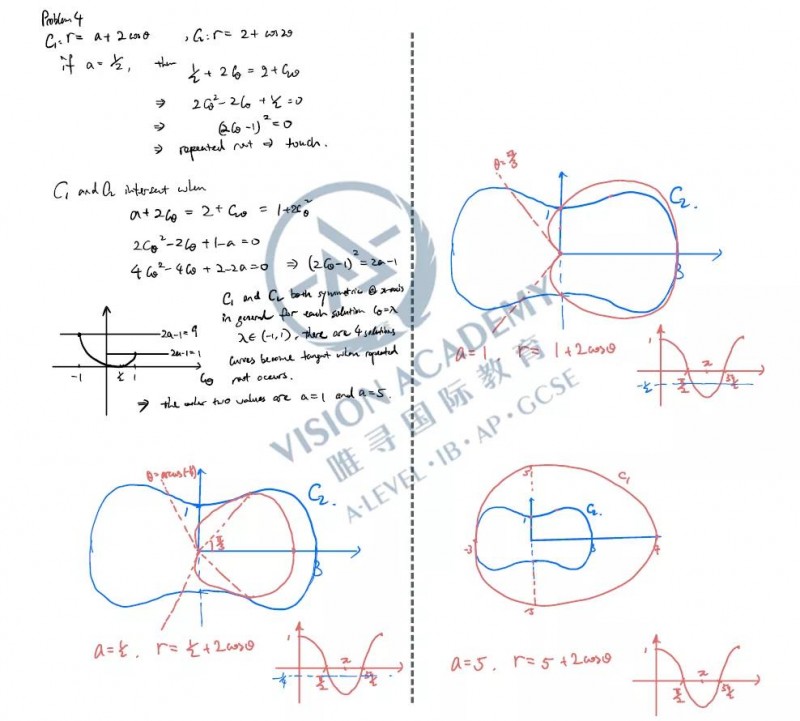 Problem 4
C₁: r = a + 2cosθ , C₂: r = 2 + cos2θ
if a = ½, then
½ + 2Cθ = 2 + C2θ
⇒ 2Cθ² - 2Cθ + ½ = 0
⇒ (2Cθ - 1)² = 0
⇒ repeated root ⇒ touch.
C₁ and C₂ intersect when
a + 2Cθ = 2 + C2θ = 1 + 2Cθ²
2Cθ² - 2Cθ + 1 - a = 0
4Cθ² - 4Cθ + 2 - 2a = 0 ⇒ (2Cθ - 1)² = 2a - 1
C₁ and C₂ both symmetric @ x-axis
in general for each solution Cθ = λ
λ ∈ (-1, 1), there are 4 solutions
curves become tangent when repeated
root occurs.
2a-1 = 9
2a-1 = 1
-1 ½ 1 Cθ
⇒ the other two values are a = 1 and a = 5.
θ = 2π/3
C₂
1
3
a = 1, r = 1 + 2cosθ
1
π
-½
π/2
3π/2
C₂
1
π/3
3
a = ½, r = ½ + 2cosθ
1
π
π/2
3π/2
5
C₁
C₂
1
-3
3
7
a = 5, r = 5 + 2cosθ
1
π
π/2
3π/2
VISION ACADEMY
唯寻国际教育
A-LEVEL·IB·AP·GCSE